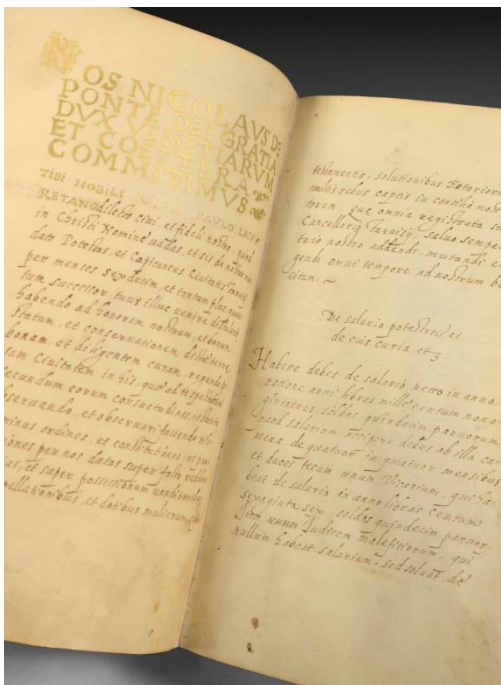 NOS NICOLAVS DE
PONTE DEI GRATIA
DVX VENETIARVM
ET COETERA.
COMMITTIMVS
TIBI NOBILI VIRO PAVLO LAVR
RETANO dilecto civi, et fideli nostro, quod
in Christi Nomine vadas, et sis de
dato Potestas, et Capitaneus Civitatis Tarvisij
per menses sexdecim, et tantum plus, quan
tum successor tuus illuc venire distulerit
habendo ad honorem nostrum, et bonum
statum, et conservationem dictae terrae,
bonam, et diligentem curam, regendo ip
sam Civitatem in his, quae ad te spectabunt
secundum eorum consuetudines,
observando, et observari faciendo
ordines, et constitutiones, ac provi
siones per nos datas super facto
et super possessionum venditionibus
appellationibus, et dotibus mulierum,
testamentis, solutionibus Notariorum
multisibus captis in consilijs nostro
rum, quae omnia registrata sunt
Cancellaria Tarvisij, salvo semper
nostro addendi, mutandi, et
gendi omni tempore ad nostrum bene
citum.
De salario potestatis et
de eius curia et3
Habere debes de salario netto in anno
ratione anni libras mille centum nona
ginta tres, soldos quindecim parvorum,
quod salarium accipere debes ab illa ca
mera de quatuor in quatuor mensibus
et duces tecum unum Vicarium, qui ha
beat de salario in anno libras centum
sexaginta sex, soldos quindecim parvor,
Item unum Judicem maleficiorum, qui
nullum habeat salarium, sed solvat de